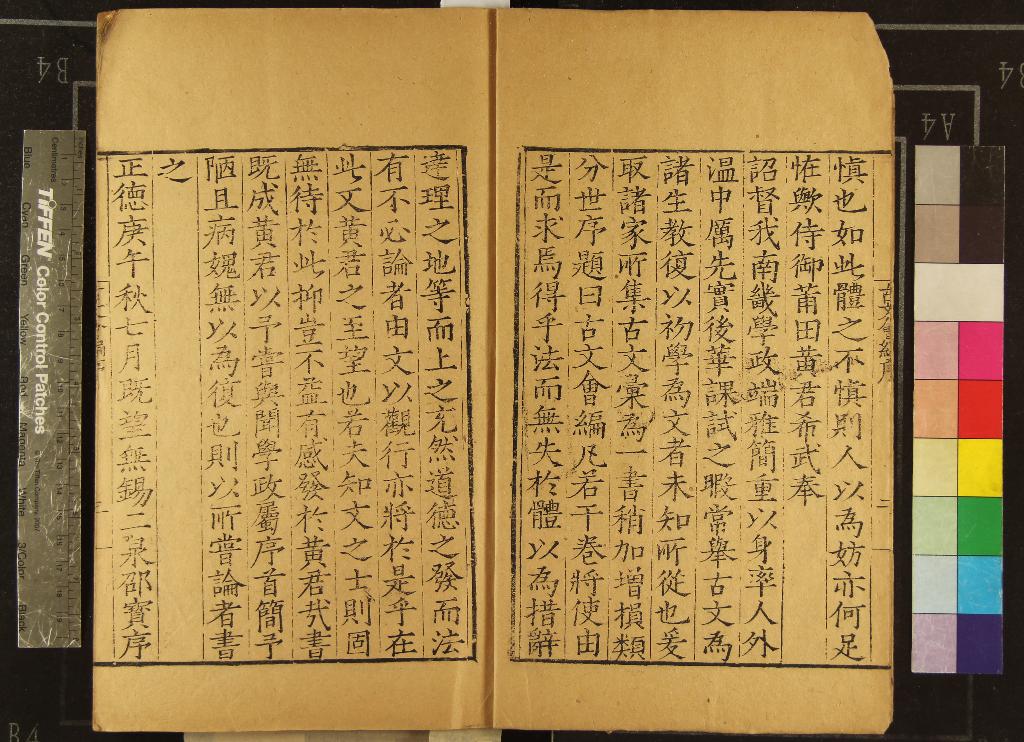 慎也如此體之不慎則人以為妨亦何足
恠歟侍御莆田黃君希武奉
詔督我南畿學政端雅簡重以身率人外
溫中厲先實後華課試之暇常舉古文為
諸生教復以初學為文者未知所從也爰
取諸家所集古文彙為一書稍加增損類
分世序題曰古文會編凡若干卷將使由
是而求焉得乎法而無失於體以為措辭
達理之地等而上之充然道德之發而法
有不必論者由文以觀行亦將於是乎在
此又黃君之至望也若夫知文之士則固
無待於此抑豈不益有感發於黃君哉書
既成黃君以予嘗與聞學政屬序首簡予
陋且病媿無以為復也則以所嘗論者書
之
正德庚午秋七月既望無錫二泉邵寶序
古文會編序
二
B4
A4
B4
TIFFEN Color Control Patches
Blue
Cyan
Green
Yellow
Red
Magenta
White
3/Color
Black
Centimetres